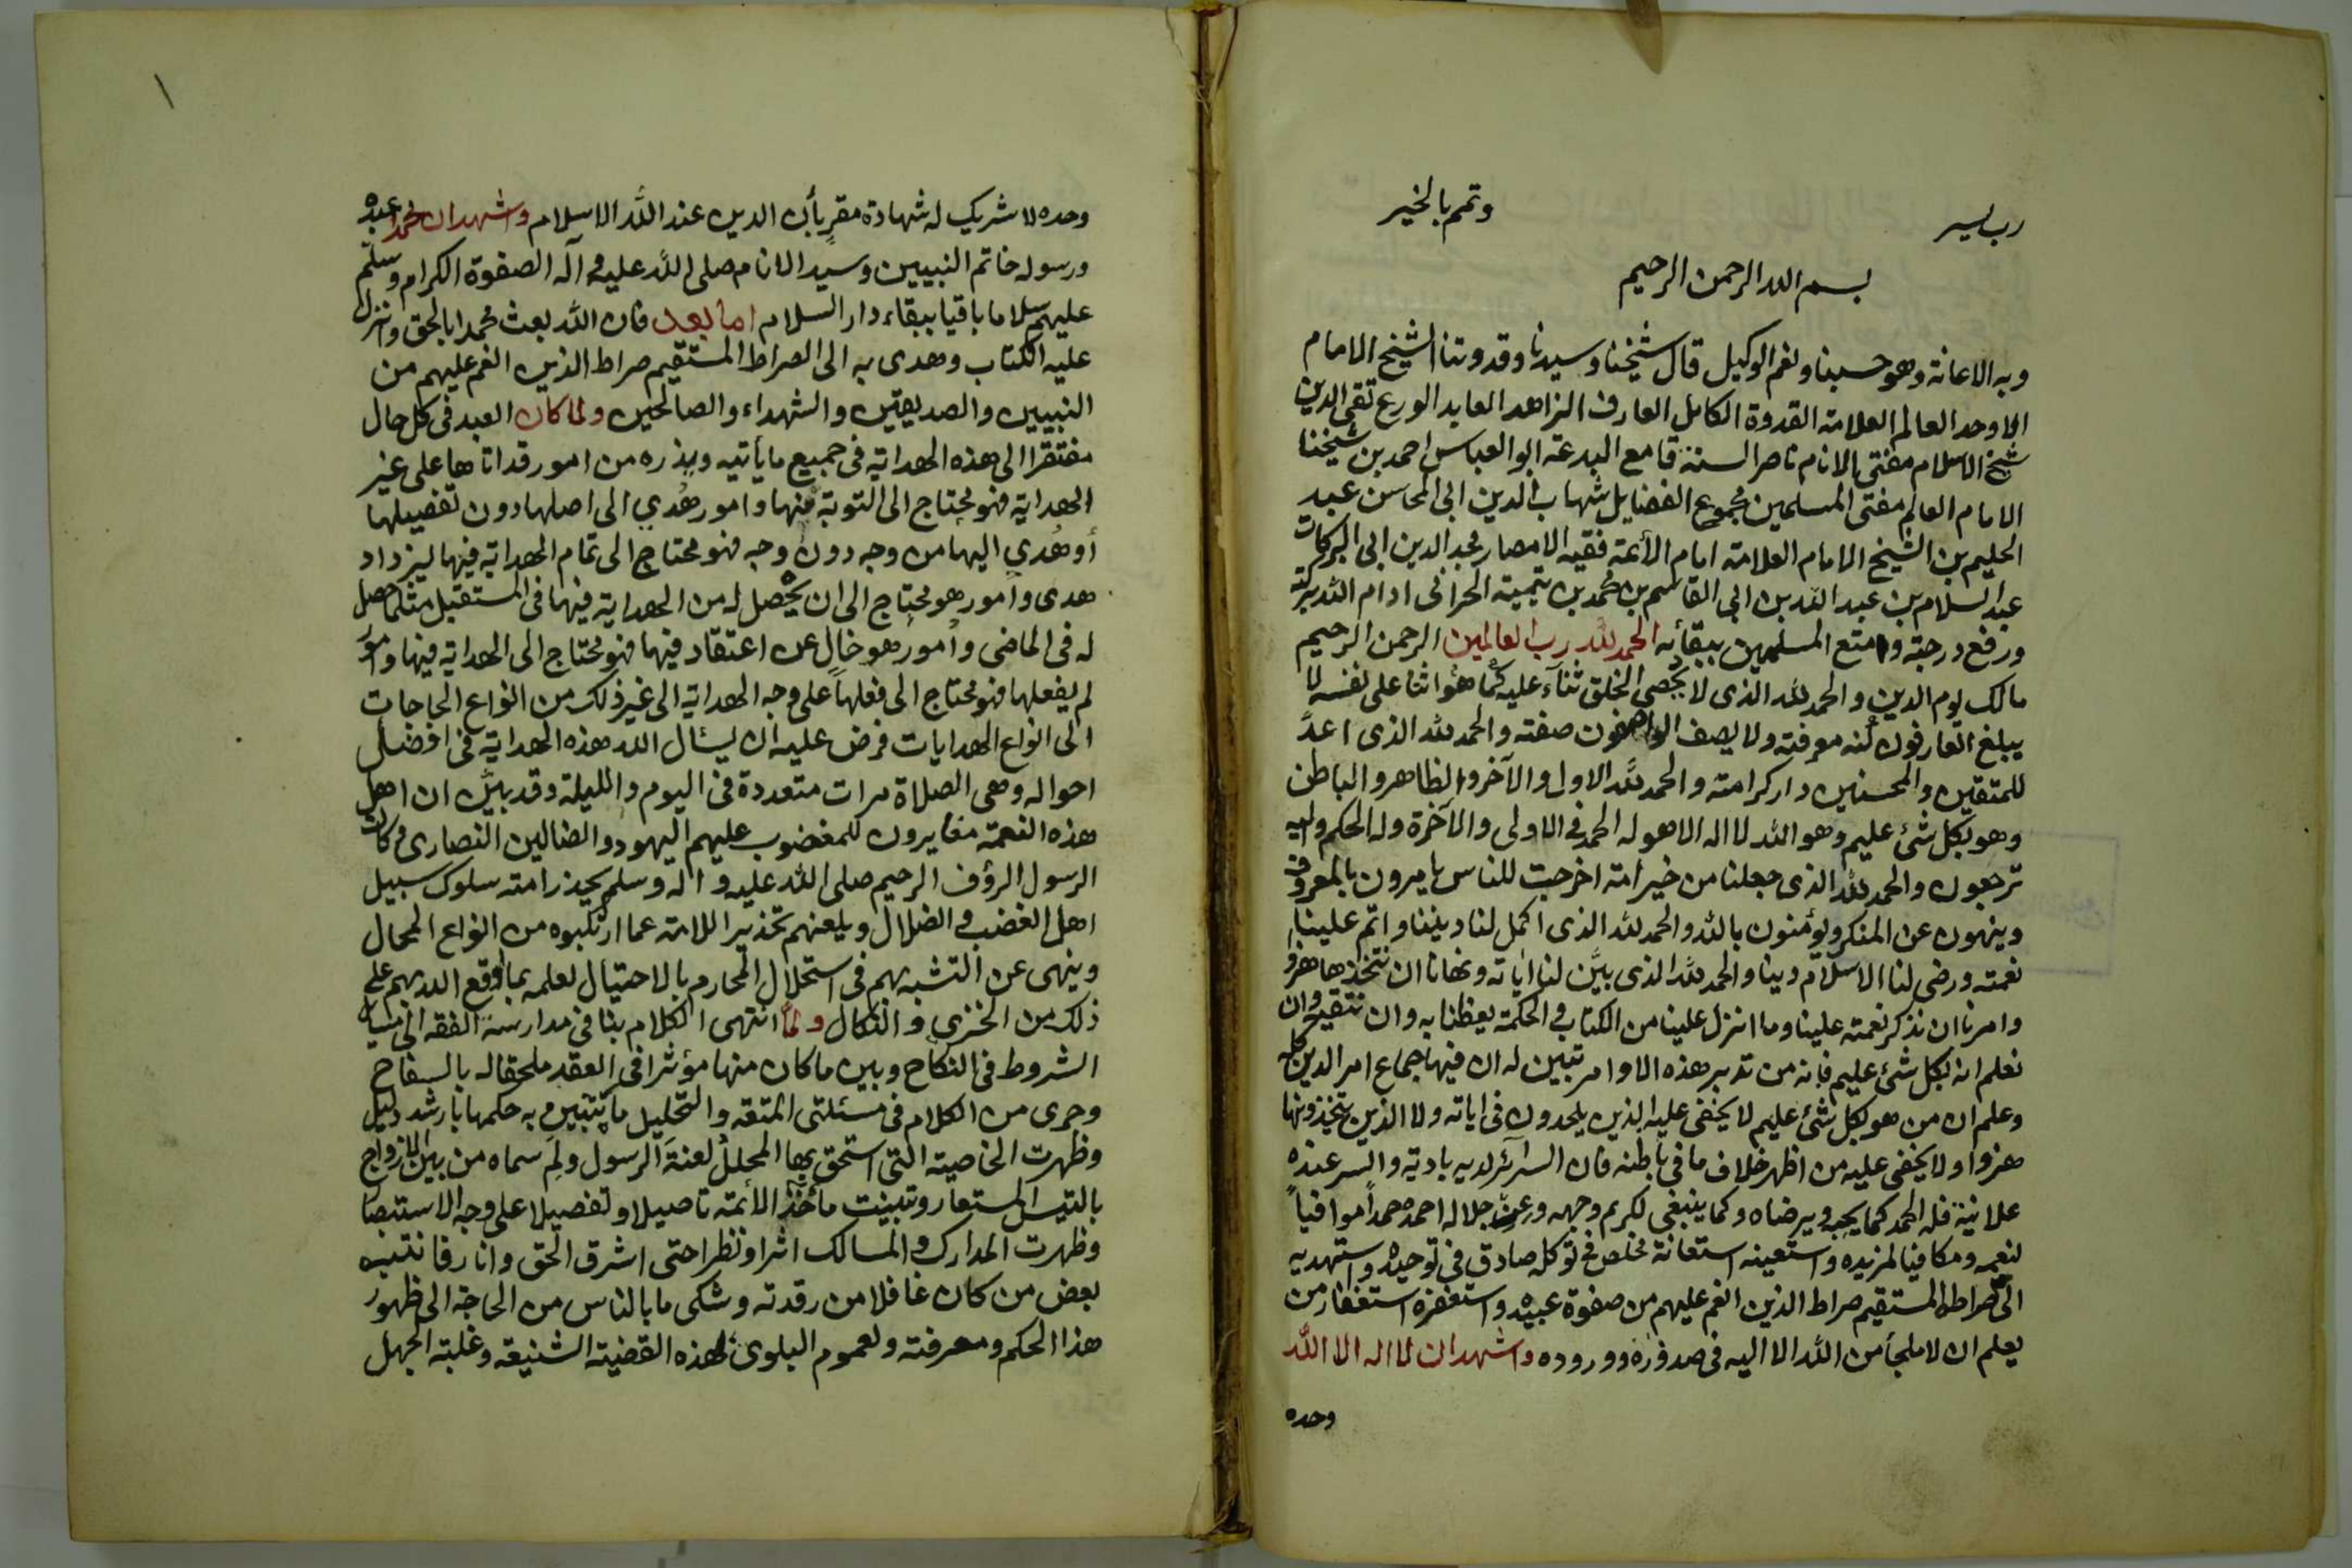 رب يسر
وتمم بالخير
بسم الله الرحمن الرحيم
وبه الاعانة وهو حسبنا ونعم الوكيل قال شيخنا وسيدنا وقدوتنا الشيخ الامام
الاوحد العالم العلامة القدوة الكامل العارف الزاهد العابد الورع تقي الدين
شيخ الاسلام مفتي الانام ناصر السنة قامع البدعة ابو العباس احمد بن شيخنا
الامام العالم مفتي المسلمين مجموع الفضايل شهاب الدين ابي المحاسن عبد
الحليم بن الشيخ الامام العلامة امام الأئمة فقيه الامصار مجد الدين ابي البركات
عبد السلام بن عبد الله بن ابي القاسم بن محمد بن تيمية الحراني ادام الله بركته
ورفع درجته وامتع المسلمين ببقائه الحمد لله رب العالمين الرحمن الرحيم
مالك يوم الدين والحمد لله الذى لا يُحصي الخلق ثنآء عليه كما هو اثنا على نفسه لا
يبلغ العارفون كُنه معرفته ولا يصف الواصفون صفته والحمد لله الذى اعدَّ
للمتقين والمحسنين دار كرامته والحمد لله الاول والآخر والظاهر والباطن
وهو بكل شئ عليم وهو الله لا اله الا هو له الحمد في الاولى والآخرة وله الحكم واليه
ترجعون والحمد لله الذى جعلنا من خير امة اخرجت للناس يامرون بالمعروف
وينهون عن المنكر ويؤمنون بالله والحمد لله الذى اكمل لنا ديننا واتم علينا
نعمته ورضي لنا الاسلام دينا والحمد لله الذى بيَّن لنا اياته ونهانا ان نتخذها هزوا
وامرنا ان نذكر نعمته علينا وما انزل علينا من الكتاب والحكمة يعظنا به وان نتقيه وان
نعلم انه بكل شئ عليم فانه من تدبر هذه الاوامر تبين له ان فيها جماع امر الدين كله
وعلم ان من هو بكل شئ عليم لا يخفى عليه الذين يلحدون في اياته ولا الذين يتخذونها
هزوا ولا يخفى عليه من اظهر خلاف ما في باطنه فان السرآئر لديه بادية والسر عنده
علانية فله الحمد كما يحبه ويرضاه وكما ينبغي لكريم وجهه وعز جلاله احمده حمداً موافياً
لنعمه ومكافيا لمزيده واستعينه استعانة مخلص في توكله صادق في توحيده واستهديه
الى صراطه المستقيم صراط الذين انعم عليهم من صفوة عبيده واستغفره استغفار من
يعلم ان لا ملجأ من الله الا اليه في صدوره ووروده واشهد ان لا اله الا الله
وحده
١
وحده لا شريك له شهادة مقرٍ بأن الدين عند الله الاسلام واشهد ان محمدا عبده
ورسوله خاتم النبيين وسيد الانام صلى الله عليه وآله الصفوة الكرام وسلم
عليهم سلاما باقيا ببقاء دار السلام اما بعد فان الله بعث محمدا بالحق وانزل
عليه الكتاب وهدى به الى الصراط المستقيم صراط الذين انعم عليهم من
النبيين والصديقين والشهداء والصالحين ولما كان العبد في كل حال
مفتقرا الى هذه الهداية في جميع ما يأتيه ويذره من امور قد اتاها على غير
الهداية فهو محتاج الى التوبة منها وامور هُدي الى اصلها دون تفصيلها
أو هُدي اليها من وجه دون وجه فهو محتاج الى تمام الهداية فيها ليزداد
هدى وامور هو محتاج الى ان يحصل له من الهداية فيها في المستقبل مثلما حصل
له في الماضى وأمور هو خالٍ عن اعتقاد فيها فهو محتاج الى الهداية فيها وامور
لم يفعلها فهو محتاج الى فعلها على وجه الهداية الى غير ذلك من انواع الحاجات
الى انواع الهدايات فرض عليه ان يسئال الله هذه الهداية في افضل
احواله وهي الصلاة مرات متعددة في اليوم والليلة وقد بيَّن ان اهل
هذه النعمة مغايرون للمغضوب عليهم اليهود والضالين النصارى وكان
الرسول الرؤف الرحيم صلى الله عليه واله وسلم يحذر امته سلوك سبيل
اهل الغضب والضلال ويلعنهم تحذيرا للامة عما ارتكبوه من انواع المحال
وينهى عن التشبه بهم في استحلال المحارم بالاحتيال لعلمه بما اوقع الله بهم على
ذلك من الخزى والنكال ولمَّا انتهى الكلام بنا في مدارسة الفقه الى مسائل
الشروط في النكاح وبين ما كان منها مؤثرا في العقد ملحقا له بالسفاح
وجرى من الكلام في مسئلتي المتعة والتحليل ما تبين به حكمها بأرشد دليل
وظهرت الخاصية التي استحق بها المحللُ لعنةَ الرسول ولِمَ سماه من بين الازواج
بالتيس المستعار وتبينت مآخذ الأئمة تاصيلا وتفصيلا على وجه الاستبصا
وظهرت المدارك والمسالك اثرا ونظرا حتى اشرق الحق وانار فانتبه
بعض من كان غافلا من رقدته وشكى ما بالناس من الحاجة الى ظهور
هذا الحكم ومعرفته ولعموم البلوى لهذه القضية الشنيعة وغلبة الجهل